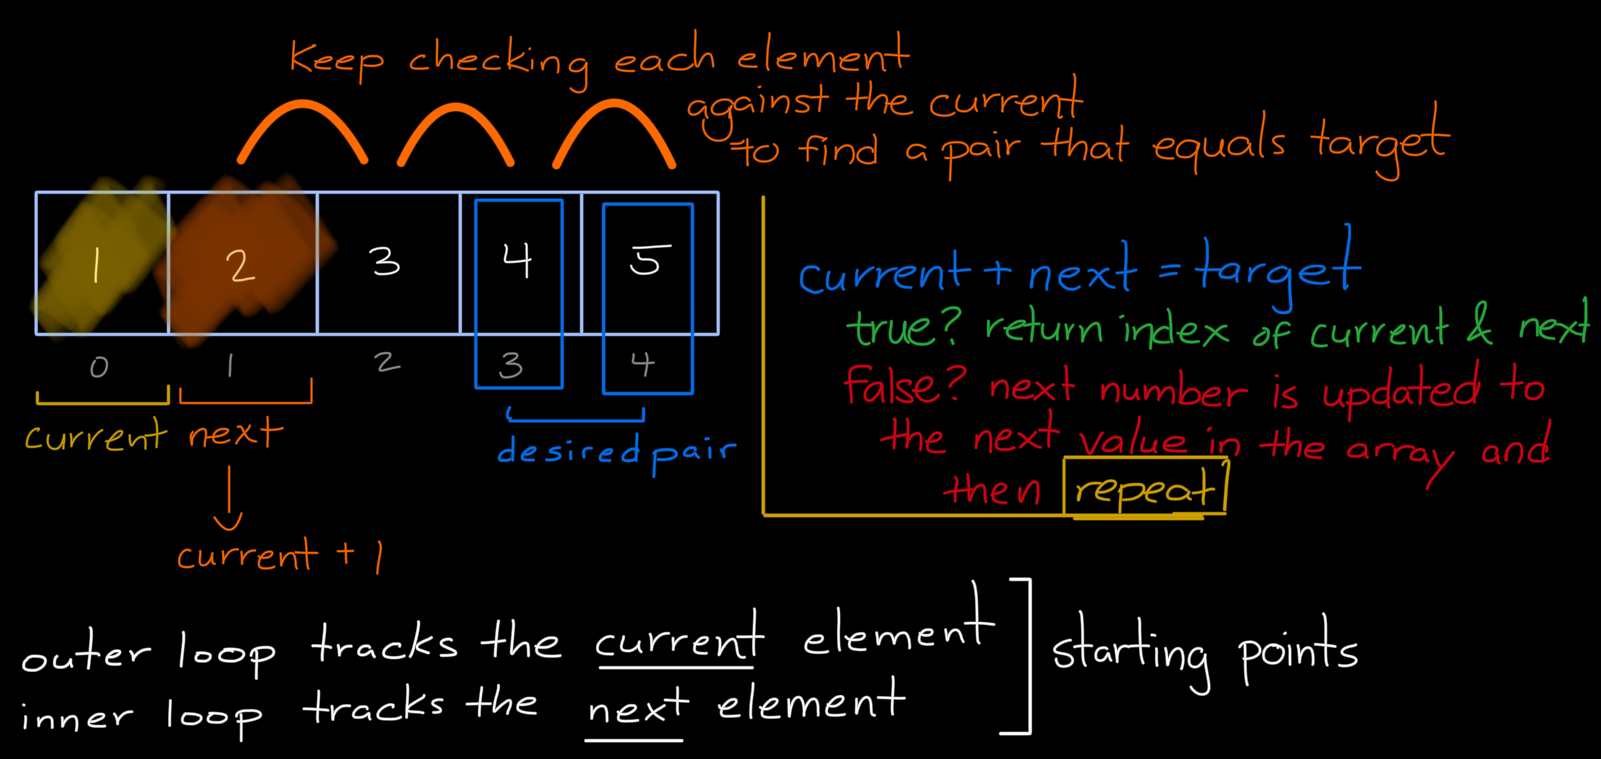 Keep checking each element
against the current
to find a pair that equals target
1 2 3 4 5
0 1 2 3 4
current next
desired pair
current + 1
current + next = target
true? return index of current & next
False? next number is updated to
the next value in the array and
then repeat
outer loop tracks the current element
inner loop tracks the next element
starting points